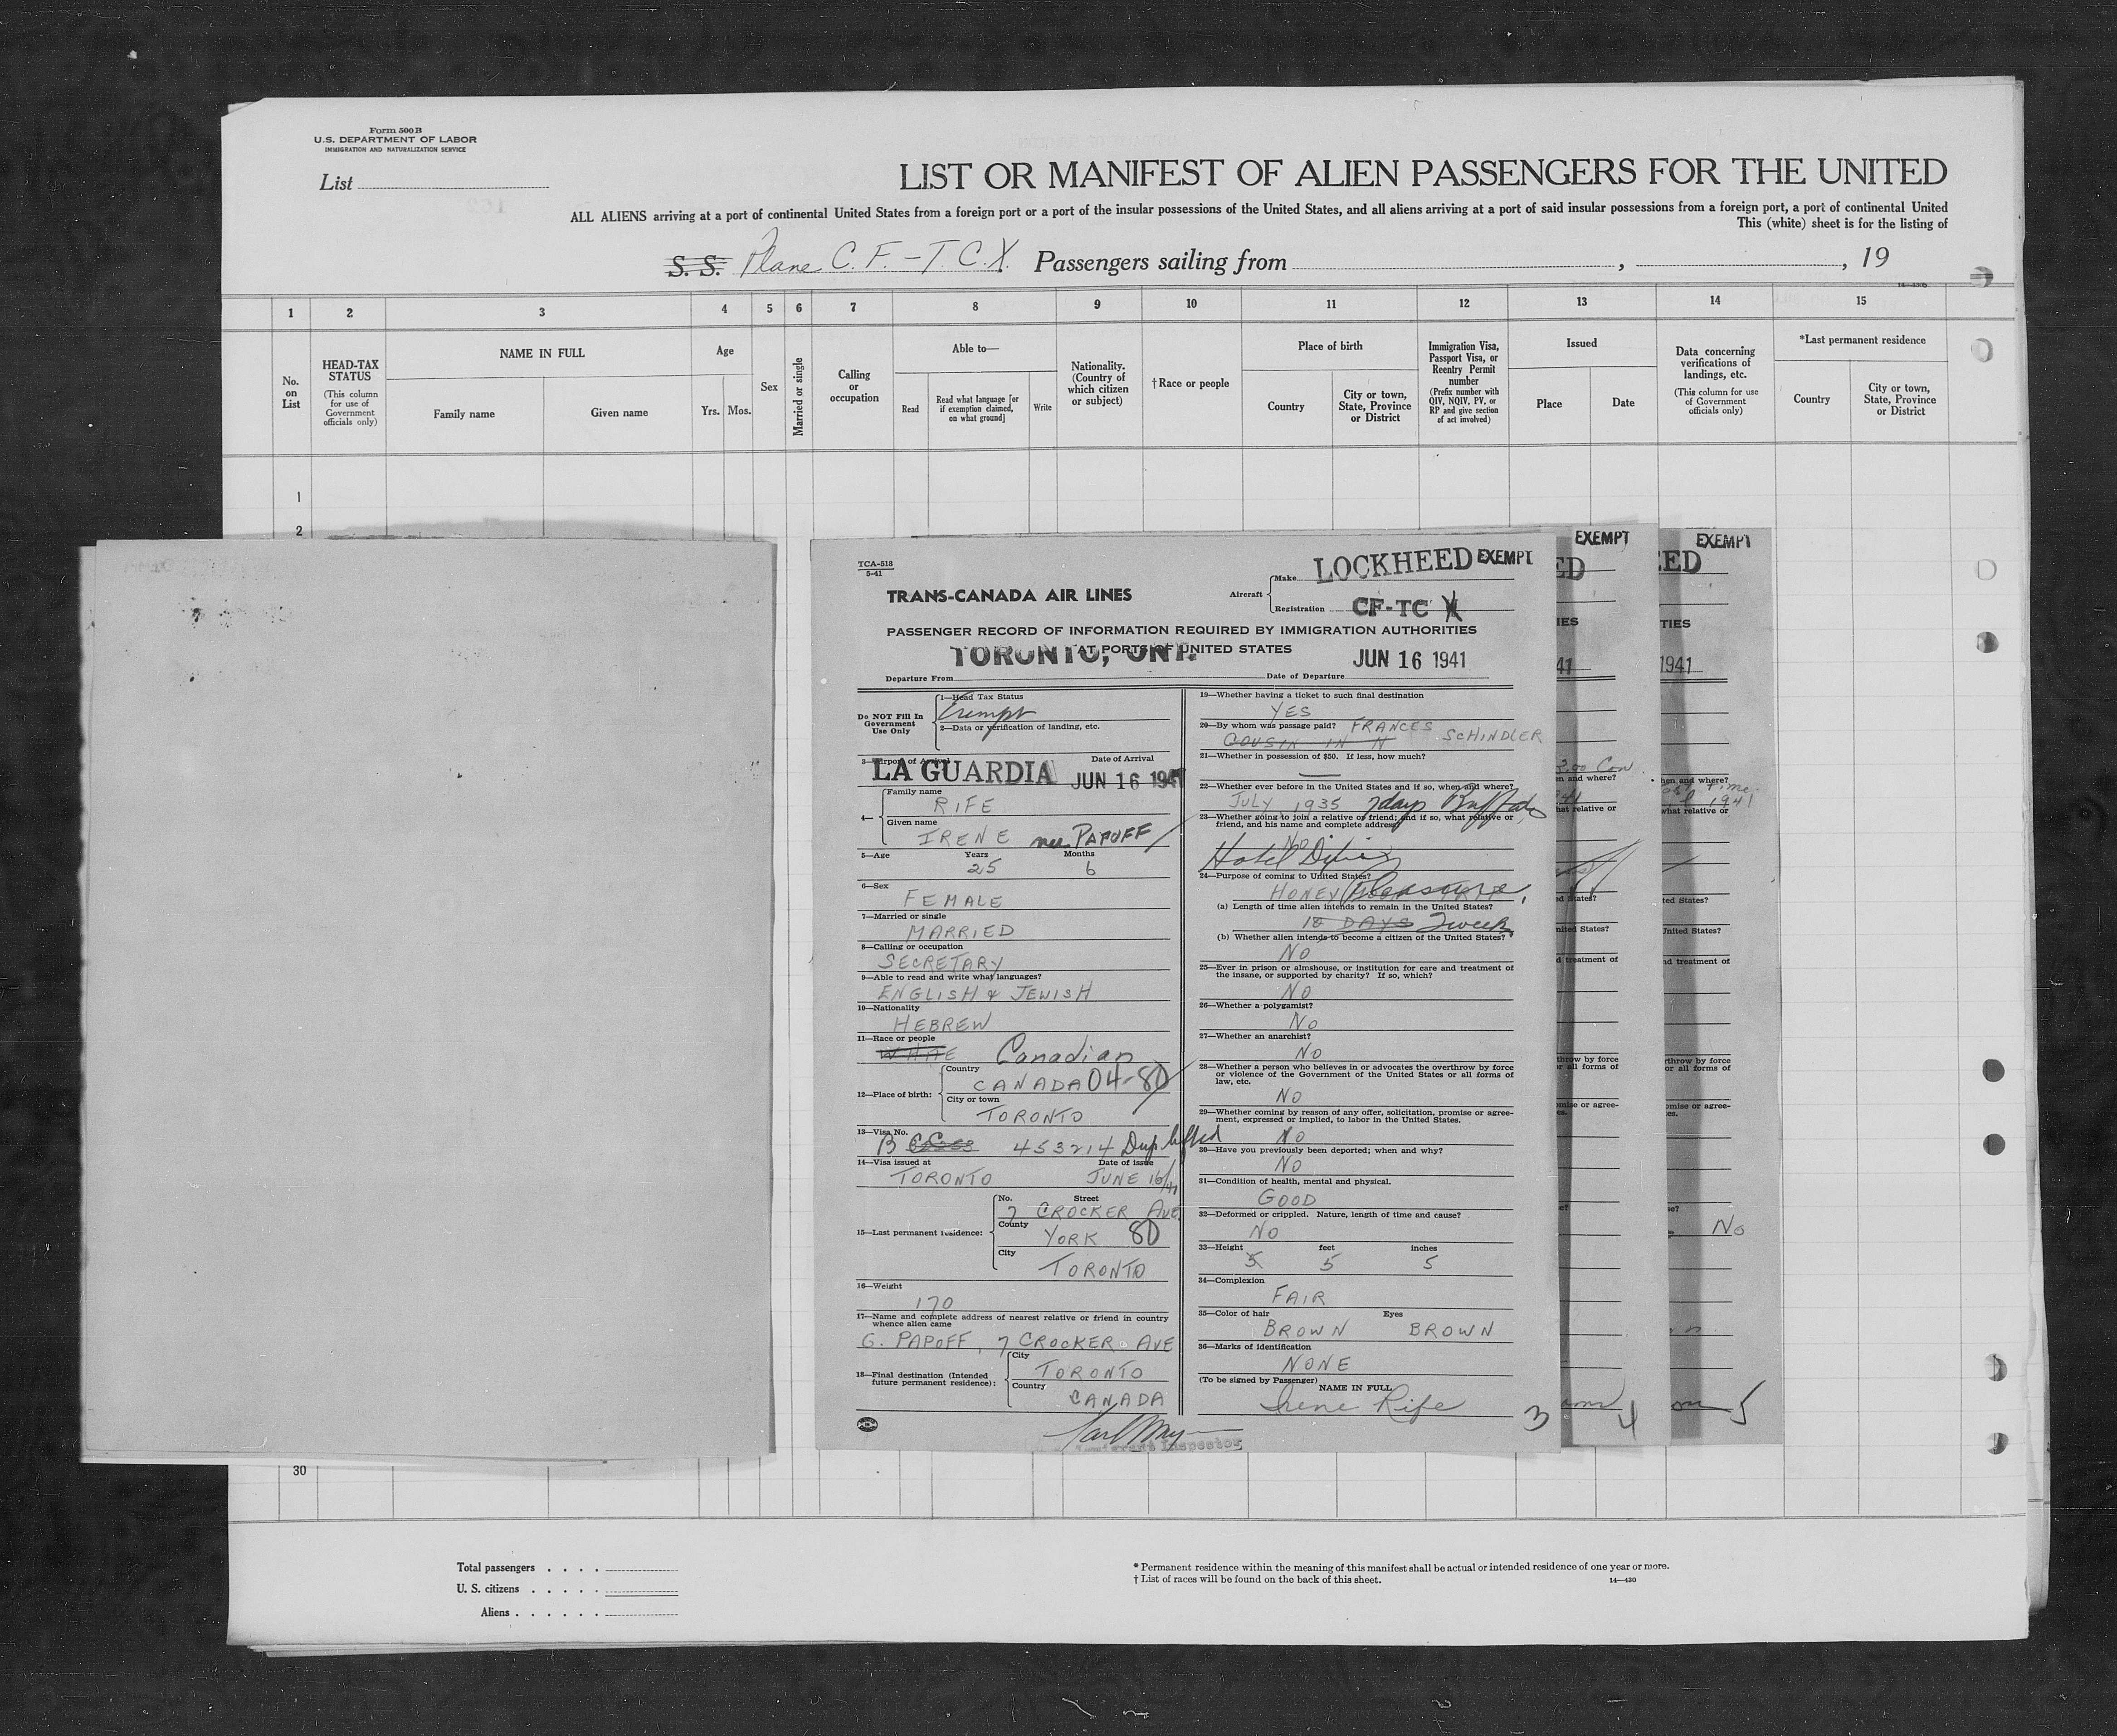 Form 500 B
U.S. DEPARTMENT OF LABOR
IMMIGRATION AND NATURALIZATION SERVICE
List
LIST OR MANIFEST OF ALIEN PASSENGERS FOR THE UNITED
ALL ALIENS arriving at a port of continental United States from a foreign port or a port of the insular possessions of the United States, and all aliens arriving at a port of said insular possessions from a foreign port, a port of continental United
This (white) sheet is for the listing of
S. S. Plane C. F. - T. C. X. Passengers sailing from , , 19
1 2 3 4 5 6 7 8 9 10 11 12 13 14 15
No. on List
HEAD-TAX STATUS (This column for use of Government officials only)
NAME IN FULL
Family name Given name
Age
Yrs. Mos.
Sex
Married or single
Calling or occupation
Able to—
Read
Read what language [or if exemption claimed, on what ground]
Write
Nationality. (Country of which citizen or subject)
† Race or people
Place of birth
Country
City or town, State, Province or District
Immigration Visa, Passport Visa, or Reentry Permit number (Prefix number with QIV, NQIV, PV, or RP and give section of act involved)
Issued
Place Date
Data concerning verifications of landings, etc. (This column for use of Government officials only)
*Last permanent residence
Country
City or town, State, Province or District
1
2
TCA-518
5-41
TRANS-CANADA AIR LINES
Aircraft
Make LOCKHEED EXEMPT
Registration CF-TC X
PASSENGER RECORD OF INFORMATION REQUIRED BY IMMIGRATION AUTHORITIES
AT PORTS OF UNITED STATES
TORONTO, ONT. JUN 16 1941
Departure From Date of Departure
Do NOT Fill In Government Use Only
1—Head Tax Status
Exempt
2—Data or verification of landing, etc.
3—Airport of Arrival Date of Arrival
LA GUARDIA JUN 16 1941
4—
Family name
RIFE
Given name
IRENE nee PAPOFF
5—Age Years Months
25 6
6—Sex
FEMALE
7—Married or single
MARRIED
8—Calling or occupation
SECRETARY
9—Able to read and write what languages?
ENGLISH & JEWISH
10—Nationality
HEBREW
11—Race or people
Canadian
12—Place of birth:
Country
CANADA 04-80
City or town
TORONTO
13—Visa No.
B 453214 Dup lifted
14—Visa issued at Date of issue
TORONTO JUNE 16/41
15—Last permanent residence:
No. Street
7 CROCKER AVE
County
YORK 80
City
TORONTO
16—Weight
170
17—Name and complete address of nearest relative or friend in country
whence alien came
G. PAPOFF, 7 CROCKER AVE
18—Final destination (Intended
future permanent residence):
City
TORONTO
Country
CANADA
19—Whether having a ticket to such final destination
YES
20—By whom was passage paid? FRANCES
COUSIN IN SCHINDLER
21—Whether in possession of $50. If less, how much?
22—Whether ever before in the United States and if so, when and where?
JULY 1935 7 days Buffalo
23—Whether going to join a relative or friend; and if so, what relative or
friend, and his name and complete address?
NO
Hotel
24—Purpose of coming to United States?
HONEY Pleasure
(a) Length of time alien intends to remain in the United States?
18 DAYS 2 week
(b) Whether alien intends to become a citizen of the United States?
NO
25—Ever in prison or almshouse, or institution for care and treatment of
the insane, or supported by charity? If so, which?
NO
26—Whether a polygamist?
NO
27—Whether an anarchist?
NO
28—Whether a person who believes in or advocates the overthrow by force
or violence of the Government of the United States or all forms of
law, etc.
NO
29—Whether coming by reason of any offer, solicitation, promise or agree-
ment, expressed or implied, to labor in the United States.
NO
30—Have you previously been deported; when and why?
NO
31—Condition of health, mental and physical.
GOOD
32—Deformed or crippled. Nature, length of time and cause?
NO
33—Height feet inches
5 5 5
34—Complexion
FAIR
35—Color of hair Eyes
BROWN BROWN
36—Marks of identification
NONE
(To be signed by Passenger)
NAME IN FULL
Irene Rife
Immigrant Inspector
3
EXEMPT
4
EXEMPT
1941
No
5
30
Total passengers
U. S. citizens
Aliens
* Permanent residence within the meaning of this manifest shall be actual or intended residence of one year or more.
† List of races will be found on the back of this sheet.
14—430